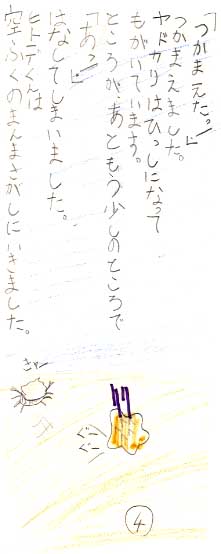 「つかまえたっ」
と
つかまえました。
ヤドカリはひっしになって
もがいています。
ところが、あともう少しのところで
「あっ」
と
はなしてしまいました。
ヒトデくんは
空ふくのまんまさがしにいきました。
きゃー
ぐぐー
④